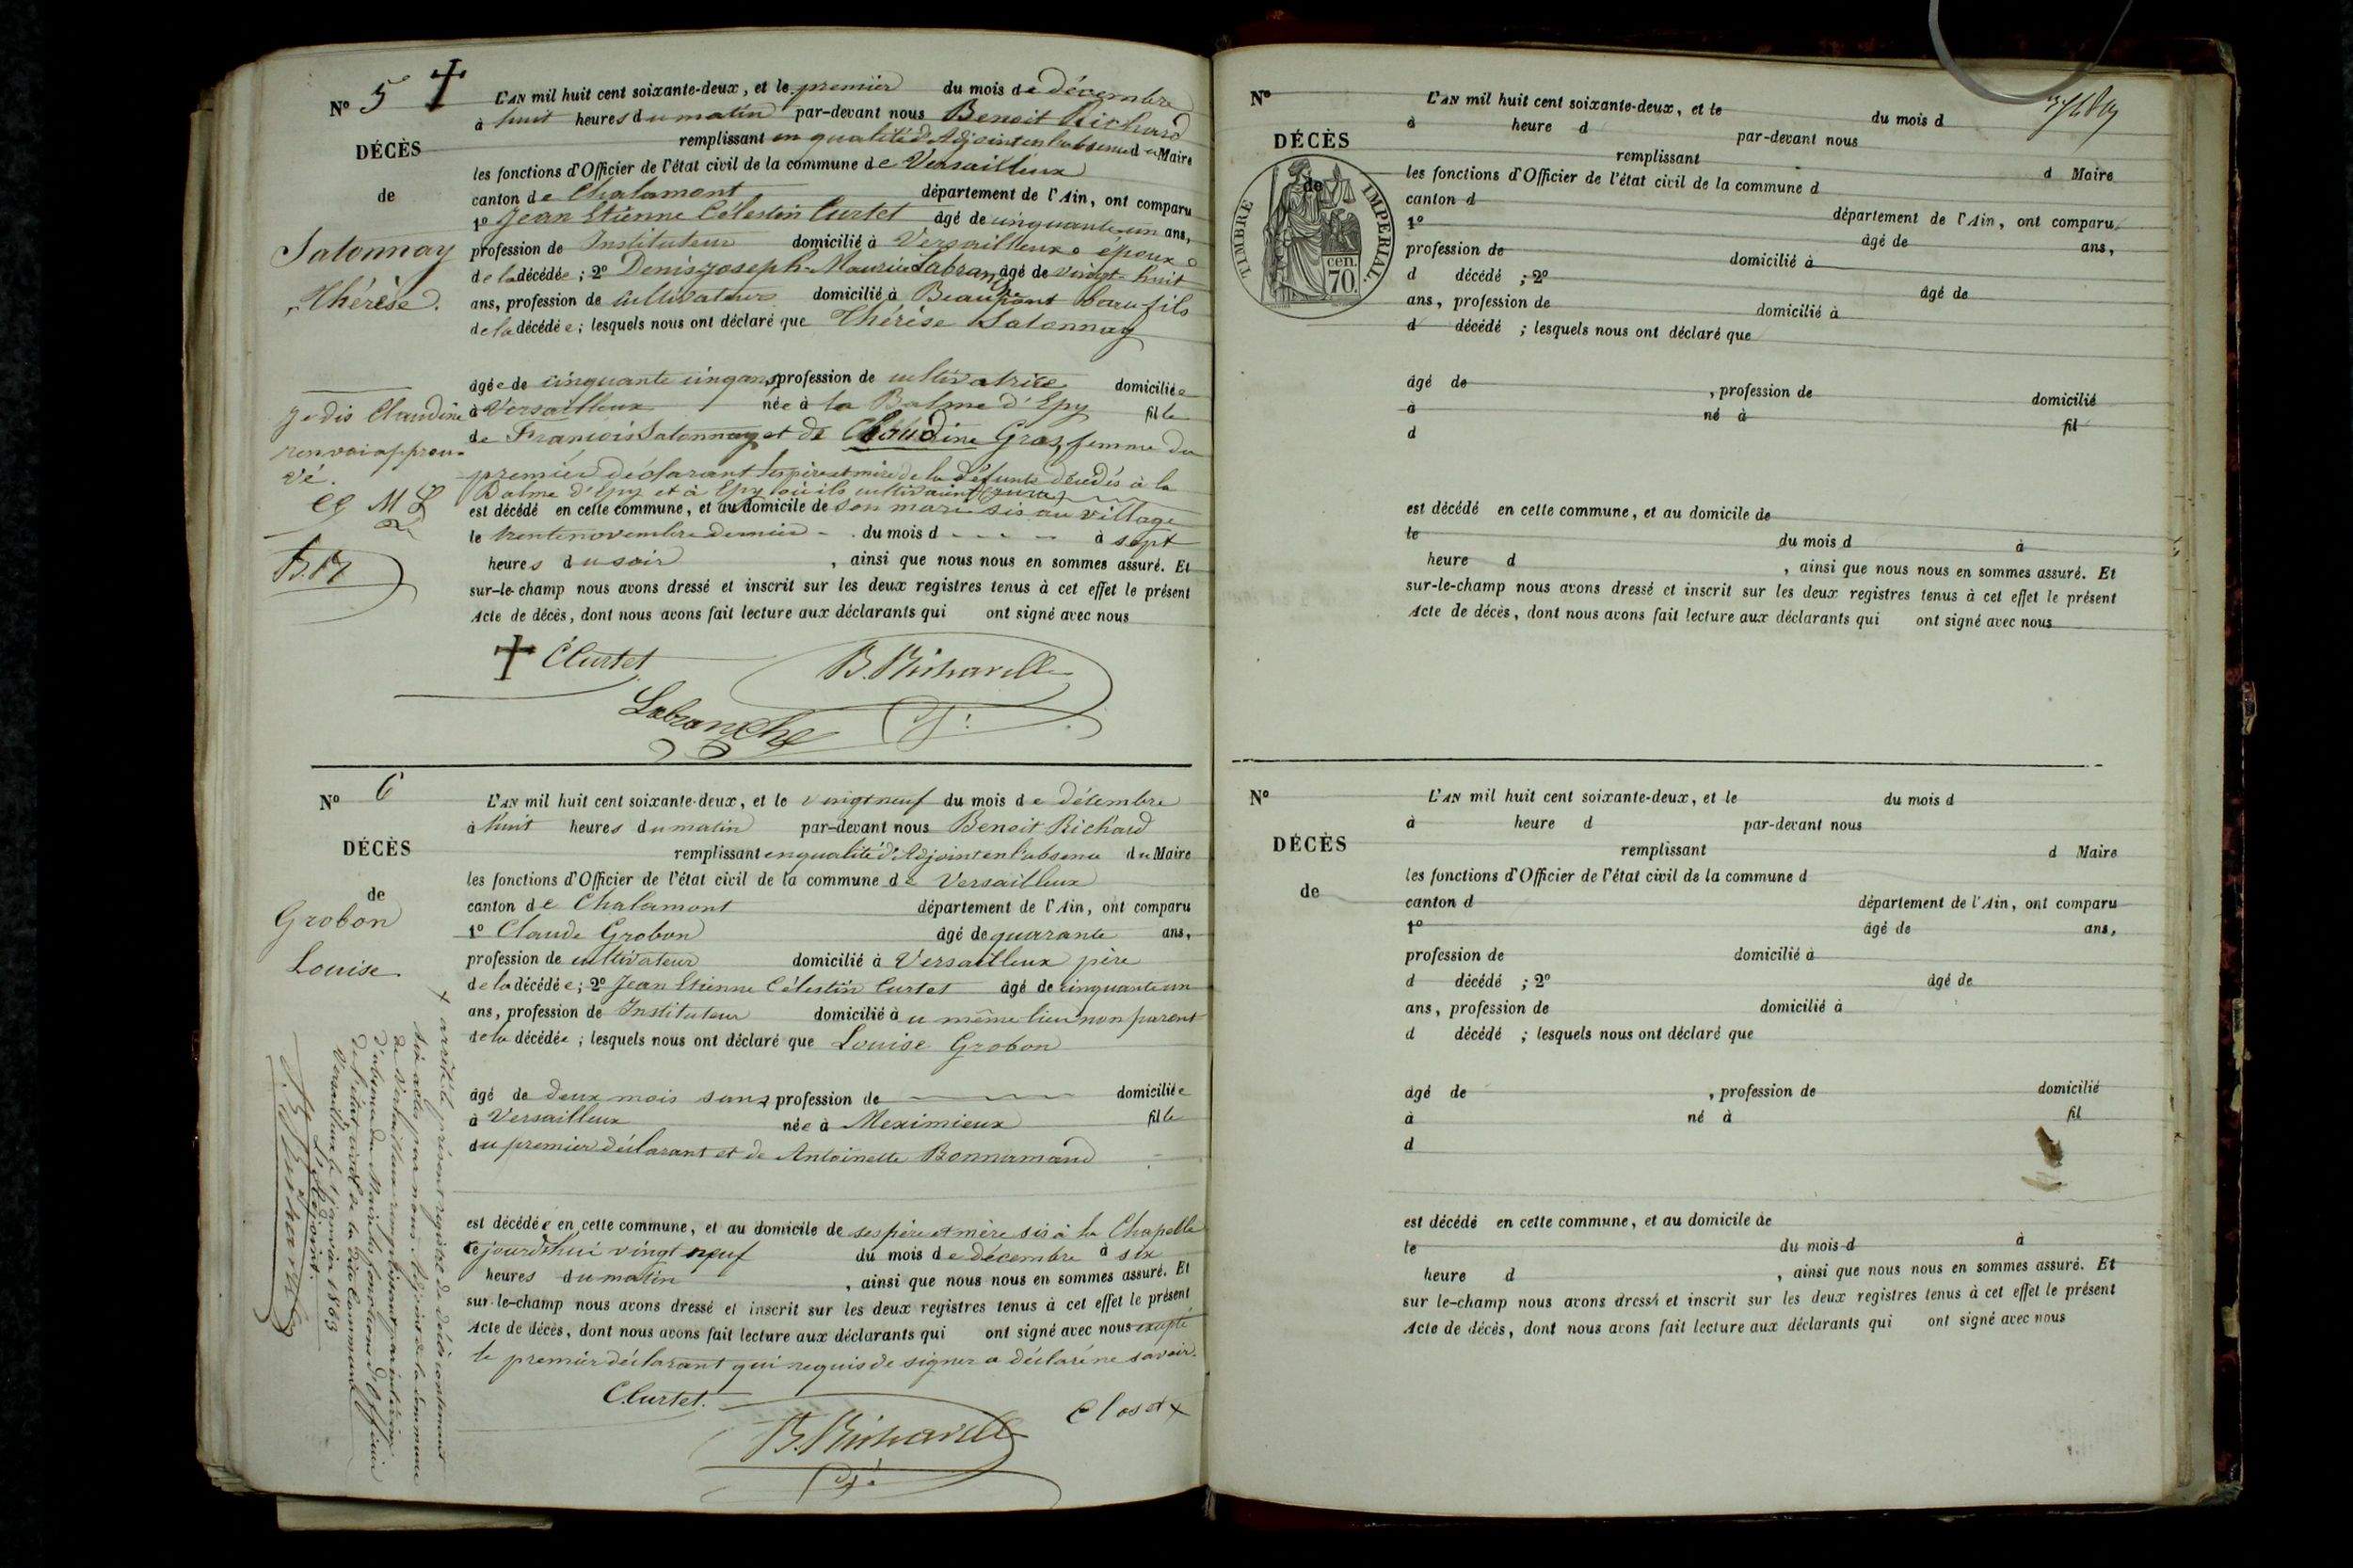 N° 5 +
DÉCÈS
de
Salonnay
Thérèse.
L'AN mil huit cent soixante-deux, et le premier du mois de décembre
à huit heures du matin par-devant nous Benoit Richard
remplissant en qualité d'Adjoint en l'absence du Maire
les fonctions d'Officier de l'état civil de la commune de Versailleux
canton de Chalamont département de l'Ain, ont comparu
1° Jean Etienne Célestin Curtet âgé de cinquante un ans,
profession de Instituteur domicilié à Versailleux époux
de la décédée ; 2° Denis Joseph Maurice Labranche âgé de vingt huit
ans, profession de cultivateur domicilié à Beaupont beau fils
de la décédée ; lesquels nous ont déclaré que Thérèse Salonnay
âgée de cinquante cinq ans, profession de cultivatrice domiciliée
à Versailleux née à la Balme d'Epy fille
de François Salonnay et de Claudine Gras, femme du
premier déclarant les père et mère de la défunte décédés à la
Balme d'Epy et à Epy où ils cultivaient (Jura)
est décédé en cette commune, et au domicile de son mari sis au village
le trente novembre dernier - . du mois d - - - - à sept
heures du soir , ainsi que nous nous en sommes assuré. Et
sur-le-champ nous avons dressé et inscrit sur les deux registres tenus à cet effet le présent
Acte de décès, dont nous avons fait lecture aux déclarants qui ont signé avec nous
Je dis Claudine
renvoi approu-
vé.
CC M L
B.R
+ C Curtet
B. Richard
Labranche
N° 6
DÉCÈS
de
Grobon
Louise.
L'AN mil huit cent soixante-deux, et le vingt neuf du mois de décembre
à huit heures du matin par-devant nous Benoit Richard
remplissant en qualité d'Adjoint en l'absence du Maire
les fonctions d'Officier de l'état civil de la commune de Versailleux
canton de Chalamont département de l'Ain, ont comparu
1° Claude Grobon âgé de quarante ans,
profession de cultivateur domicilié à Versailleux père
de la décédée ; 2° Jean Etienne Célestin Curtet âgé de cinquante un
ans, profession de Instituteur domicilié à u même lieu non parent
de la décédée ; lesquels nous ont déclaré que Louise Grobon
âgé de deux mois sans, profession de domiciliée
à Versailleux née à Meximieux fille
du premier déclarant et de Antoinette Bonnamand
est décédée en cette commune, et au domicile de ses père et mère sis à la Chapelle
ce jourd'hui vingt neuf du mois de décembre à six
heures du matin , ainsi que nous nous en sommes assuré. Et
sur-le-champ nous avons dressé et inscrit sur les deux registres tenus à cet effet le présent
Acte de décès, dont nous avons fait lecture aux déclarants qui ont signé avec nous excepté
le premier déclarant qui requis de signer a déclaré ne savoir.
C. Curtet.
B. Richard
Clos et x
x arrêté le présent registre de décès contenant
six actes par nous Adjoint de la Commune
de Versailleux remplissant par intérim
d'absence du Maire les fonctions d'Officier
de l'état civil de la dite Commune
Versailleux le 1 janvier 1863
L'Adjoint.
B. Richard
N°
DÉCÈS
de
TIMBRE IMPÉRIAL.
cen.
70.
L'AN mil huit cent soixante-deux, et le du mois d
à heure d par-devant nous
remplissant d Maire
les fonctions d'Officier de l'état civil de la commune d
canton d département de l'Ain, ont comparu
1° âgé de ans,
profession de domicilié à
d décédé ; 2° âgé de
ans, profession de domicilié à
d décédé ; lesquels nous ont déclaré que
âgé de , profession de domicilié
à né à fil
d
est décédé en cette commune, et au domicile de
le du mois d à
heure d , ainsi que nous nous en sommes assuré. Et
sur-le-champ nous avons dressé et inscrit sur les deux registres tenus à cet effet le présent
Acte de décès, dont nous avons fait lecture aux déclarants qui ont signé avec nous
N°
DÉCÈS
de
L'AN mil huit cent soixante-deux, et le du mois d
à heure d par-devant nous
remplissant d Maire
les fonctions d'Officier de l'état civil de la commune d
canton d département de l'Ain, ont comparu
1° âgé de ans,
profession de domicilié à
d décédé ; 2° âgé de
ans, profession de domicilié à
d décédé ; lesquels nous ont déclaré que
âgé de , profession de domicilié
à né à fil
d
est décédé en cette commune, et au domicile de
le du mois d à
heure d , ainsi que nous nous en sommes assuré. Et
sur le-champ nous avons dressé et inscrit sur les deux registres tenus à cet effet le présent
Acte de décès, dont nous avons fait lecture aux déclarants qui ont signé avec nous